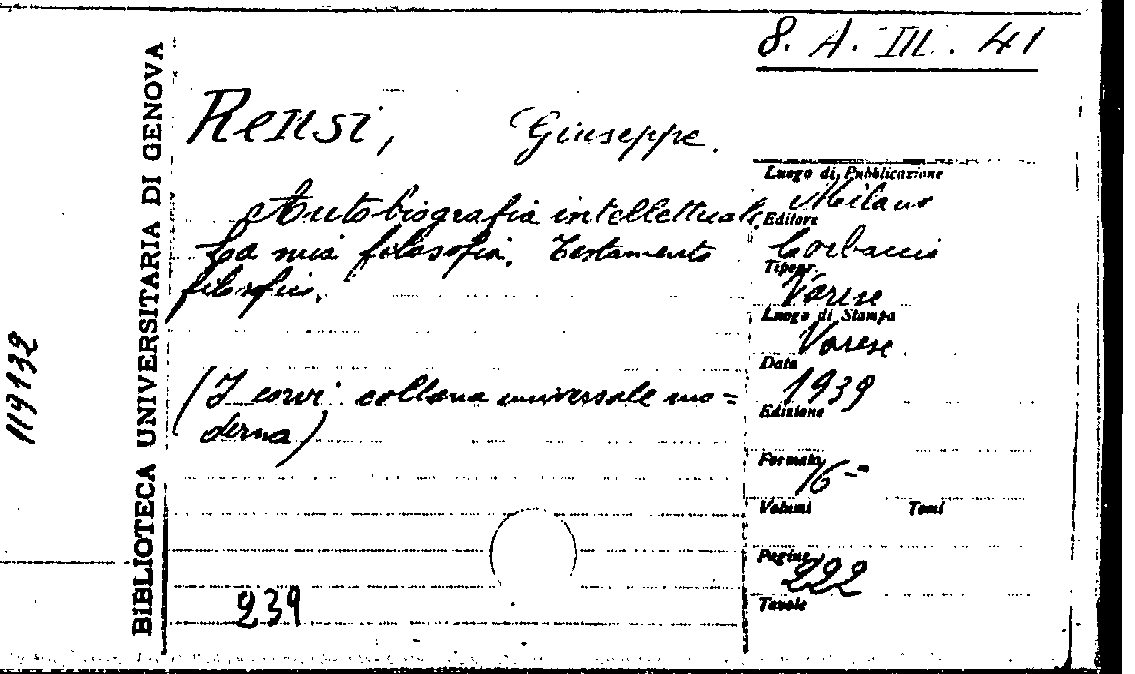 8. A. III. 41
BIBLIOTECA UNIVERSITARIA DI GENOVA
119132
Rensi, Giuseppe.
Autobiografia intellettuale.
La mia filosofia. Testamento
filosofico.
(I corvi: collana universale mo=
derna)
239
Luogo di Pubblicazione
Milano
Editore
Corbaccio
Tipogr.
Varese
Luogo di Stampa
Varese
Data
1939
Edizione
Formato
16-°
Volumi Tomi
Pagine
222
Tavole